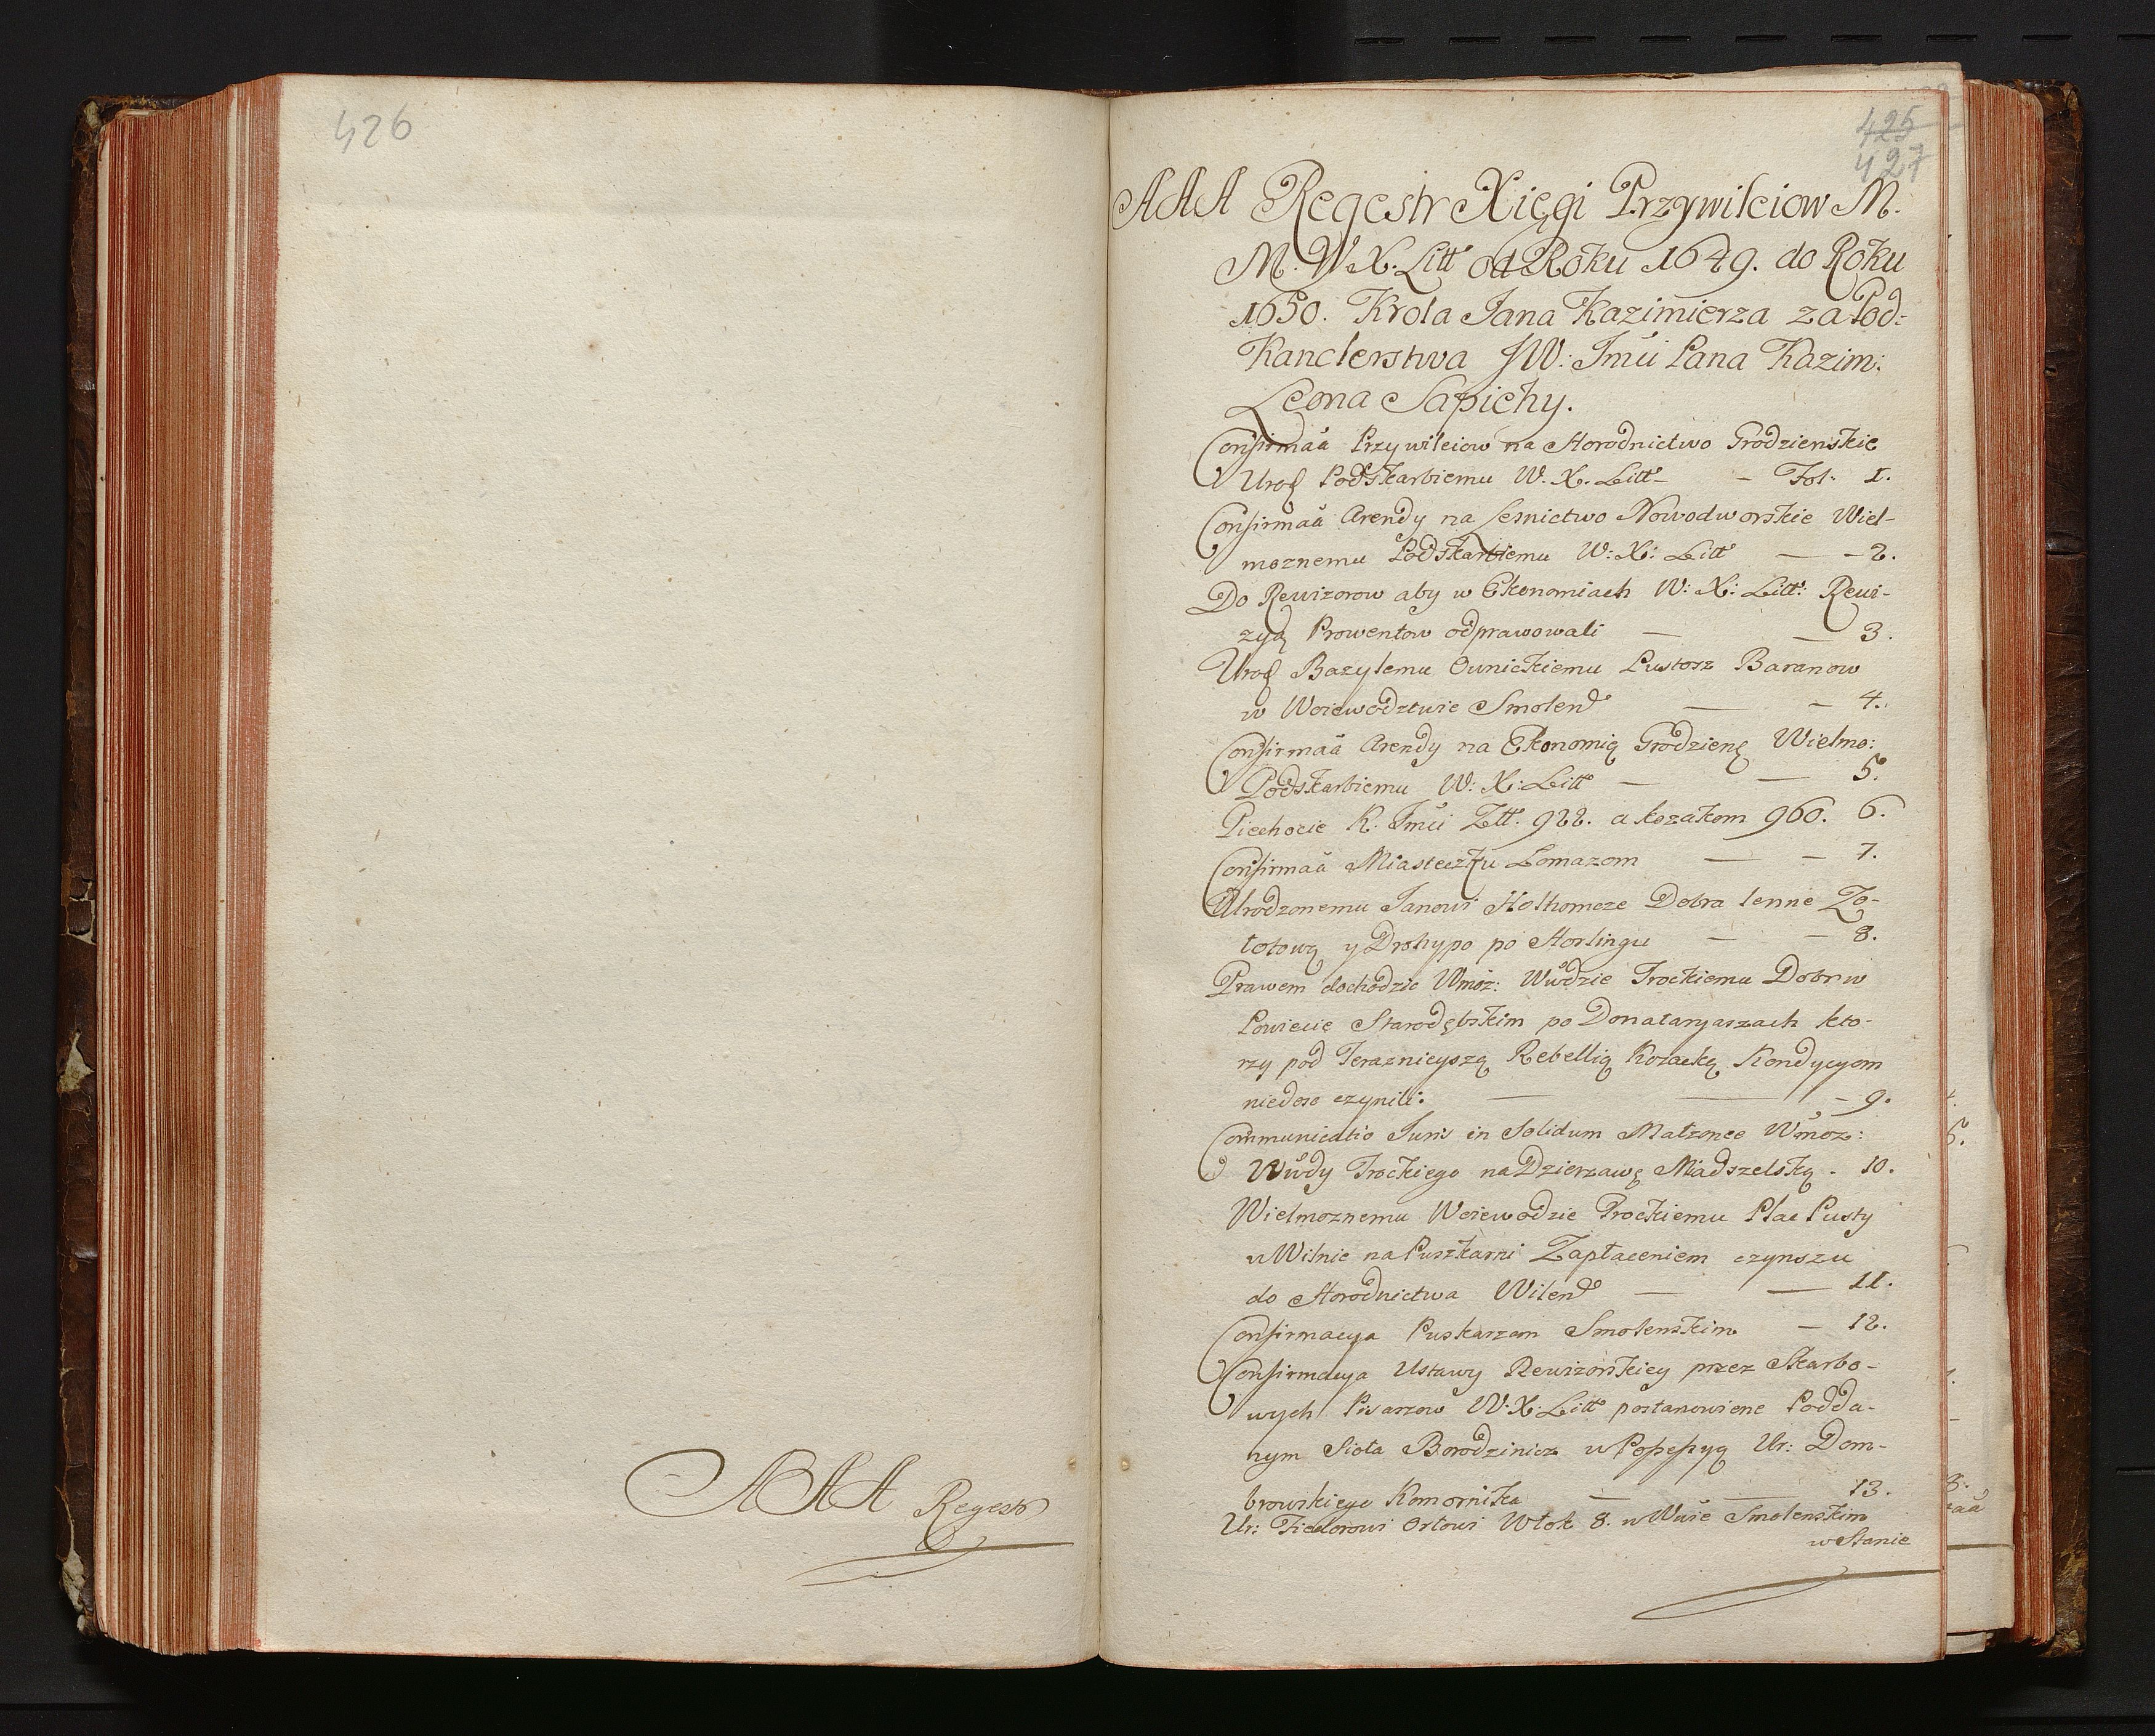 426
AAA Regestr
425
427
AAA Regestr Xięgi Przywileiow M.
M. W X. Litt od Roku 1649. do Roku
1650. Krola Jana Kazimierza za Pod:
Kanclerstwa JW: Jmći Pana Kazim:
Leona Sapiehy.
Confirmaa Przywileiow na Horodnictwo Grodzienskie
Urod Podskarbiemu W. X. Litt - Fol: 1.
Confirmaa Arendy na Lesnictwo Nowodworskie Wiel-
moznemu Podskarbiemu W: X: Litt — - 2.
Do Rewizorow aby w Ekonomiach W: X: Litt: Rewi-
zyą Prowentow odprawowali — — 3.
Urod Bazylemu Ownickiemu Pustosz Baranow
w Woiewodztwie Smolen — - 4.
Confirmaa Arendy na Ekonomią Grodzieną Wielmo:
Podskarbiemu W: X: Litt — — 5.
Piechocie K. Jmći Zlt. 922. a kozakom 960. 6.
Confirmaa Miasteczku Lomazom — - 7.
Urodzonemu Janowi Holhomcze Dobra lenne Zo-
totową y Drohypo po Horlingu — - 8.
Prawem dochodzic Wmoż: Wwdzie Trockiemu Dobr w
Powiecie Starodębskim po Donataryaszach kto-
rzy pod Teraznieyszą Rebellią Kozacką Kondycyom
niedosc czynili. — — - 9.
Communicatio Juris in Solidum Malzonce Wmoz:
Wwdy Trockiego na Dzierzawę Miadszelską - 10.
Wielmoznemu Woiewodzie Trockiemu Plac Pusty
w Wilnie na Puszkarni Zapłaceniem czynszu
do Horodnictwa Wilen — — 11.
Confirmacya Puskarzom Smolenskim — 12.
Confirmacya Ustawy Rewizorskiey przez Skarbo-
wych Pisarzow W. X: Litt postanowione Podda-
nym Siola Borodzinicz w Possessyą Ur: Dom-
browskiego Komornika — — 13.
Ur: Fiedorowi Orlowi Wlok 8. w Wwie Smolenskim
w Stanie